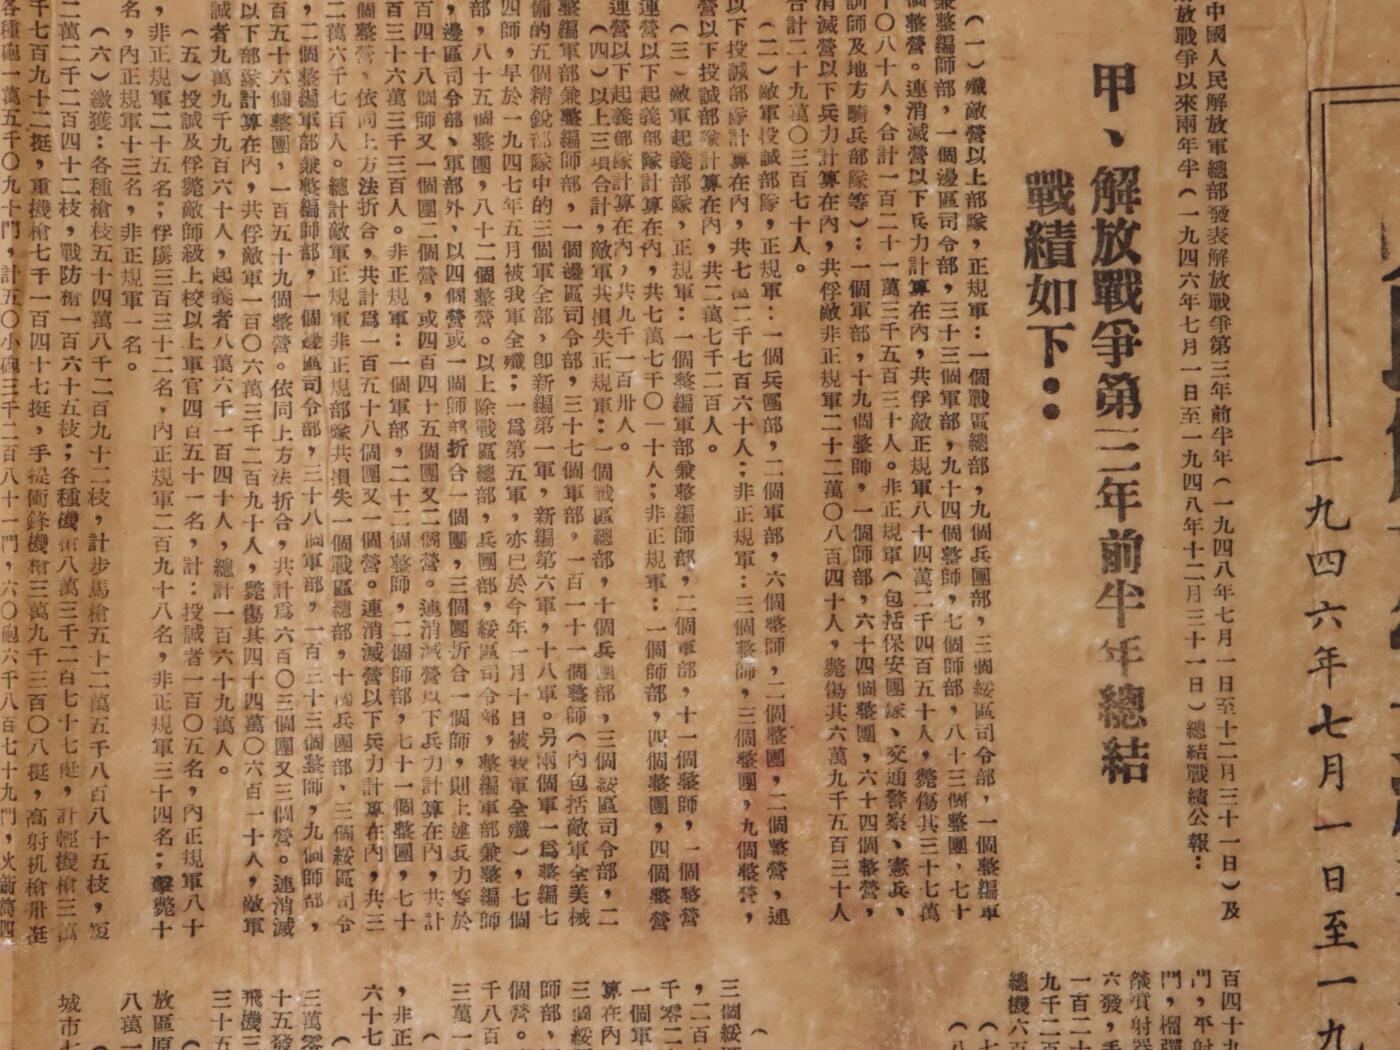 一九四六年七月一日至一九
中國人民解放軍總部發表解放戰爭第三年前半年(一九四八年七月一日至十二月三十一日)及
解放戰爭以來兩年半(一九四六年七月一日至一九四八年十二月三十一日)總結戰績公報:
甲、解放戰爭第三年前半年總結
戰績如下:
(一)殲敵營以上部隊,正規軍:一個戰區總部,九個兵團部,三個綏區司令部,一個整編軍
兼整編師部,一個邊區司令部,三十三個軍部,九十四個整師,七個師部,八十三個整團,七十
個整營。連消滅營以下兵力計算在內,共俘敵正規軍八十四萬二千四百五十人,斃傷其三十七萬
〇八十人,合計一百二十一萬三千五百三十人。非正規軍(包括保安團隊、交通警察、憲兵、
訓師及地方騎兵部隊等):一個軍部,十九個整師,一個師部,六十四個整團,六十四個整營,
消滅營以下兵力計算在內,共俘敵非正規軍二十二萬〇八百四十人,斃傷其六萬九千五百三十人
合計二十九萬〇三百七十人。
(二)敵軍投誠部隊,正規軍:一個兵團部,二個軍部,六個整師,二個整團,二個整營,連
以下投誠部隊計算在內,共七萬二千七百六十人;非正規軍:三個整師,三個整團,九個整營,
營以下投誠部隊計算在內,共二萬七千二百人。
(三)敵軍起義部隊,正規軍:一個整編軍部兼整編師部,二個軍部,十一個整師,一個整營
連營以下起義部隊計算在內,共七萬七千〇一十人;非正規軍:一個師部,四個整團,四個整營
連營以下起義部隊計算在內,共九千一百卅人。
(四)以上三項合計,敵軍共損失正規軍:一個戰區總部,十個兵團部,三個綏區司令部,二
整編軍部兼整編師部,一個邊區司令部,三十七個軍部,一百一十一個整師(內包括敵軍全美械
備的五個精銳部隊中的三個軍全部,卽新編第一軍,新編第六軍,十八軍。另兩個軍一爲整編七
四師,早於一九四七年五月被我軍全殲;一爲第五軍,亦已於今年一月十日被我軍全殲),七個
部,八十五個整團,八十二個整營。以上除戰區總部,兵團部,綏區司令部,整編軍部兼整編師
,邊區司令部、軍部外,以四個營或一個師部折合一個團,三個團折合一個師,則上述兵力等於
百四十八個師又一個團二個營,或四百四十五個團又二個營。連消滅營以下兵力計算在內,共計
百三十六萬三千三百人。非正規軍:一個軍部,二十二個整師,二個師部,七十一個整團,七十
個整營,依同上方法折合,共計爲一百五十八個團又一個營。連消滅營以下兵力計算在內,共三
二萬六千七百人。總計敵軍正規軍非正規部隊共損失一個戰區總部,十個兵團部,三個綏區司令
,二個整編軍部兼整編師部,一個邊區司令部,三十八個軍部,一百三十三個整師,九個師部,
百五十六個整團,一百五十九個整營。依同上方法折合,共計爲六百〇三個團又三個營。連消滅
以下部隊計算在內,共俘敵軍一百〇六萬三千二百九十人,斃傷其四十四萬〇六百一十人,敵軍
誠者九萬九千九百六十人,起義者八萬六千一百四十人,總計一百六十九萬人。
(五)投誠及俘斃敵師級上校以上軍官四百五十一名,計:投誠者一百〇五名,內正規軍八十
,非正規軍二十五名;俘虜三百三十二名,內正規軍二百九十八名,非正規軍三十四名;擊斃十
名,內正規軍十三名,非正規軍一名。
(六)繳獲:各種槍枝五十四萬八千二百九十二枝,計步馬槍五十二萬五千八百八十五枝,短
二萬二千二百四十二枝,戰防槍一百六十五枝;各種機槍八萬三千二百七十七挺,計輕機槍三萬
千七百九十二挺,重機槍七千一百四十七挺,手提衝鋒機槍三萬九千三百〇八挺,高射机槍卅挺
各種砲一萬五千〇九十門,計五〇小砲三千二百八十一門,六〇砲六千八百七十九門,火箭筒四
百四十九
門,平射
門,榴彈
燄噴射器
六發,手
一百二十
九千二百
總機六百
(七
(八
(
三個綏
,二百
千零二
一個軍
算在內
三個綏
師部,
個營。
千八百
三萬一
(
,非正
六十七
(
三萬零
十五發
飛機三
三十五
(
放區原
八萬一
(
城市七